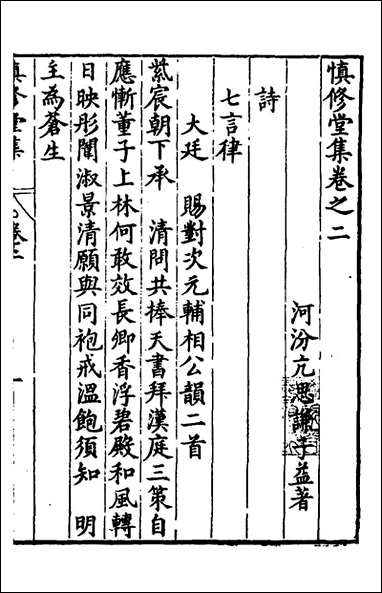 慎修堂集卷之二
河汾亢思謙子益著
詩
七言律
大廷 賜對次元輔相公韻二首
紫宸朝下承 清問共捧天書拜漢庭三策自
應慚董子上林何敢效長卿香浮碧殿和風轉
日映彤闈淑景清願與同袍戒溫飽須知 明
主為蒼生
慎修堂集 卷二 一